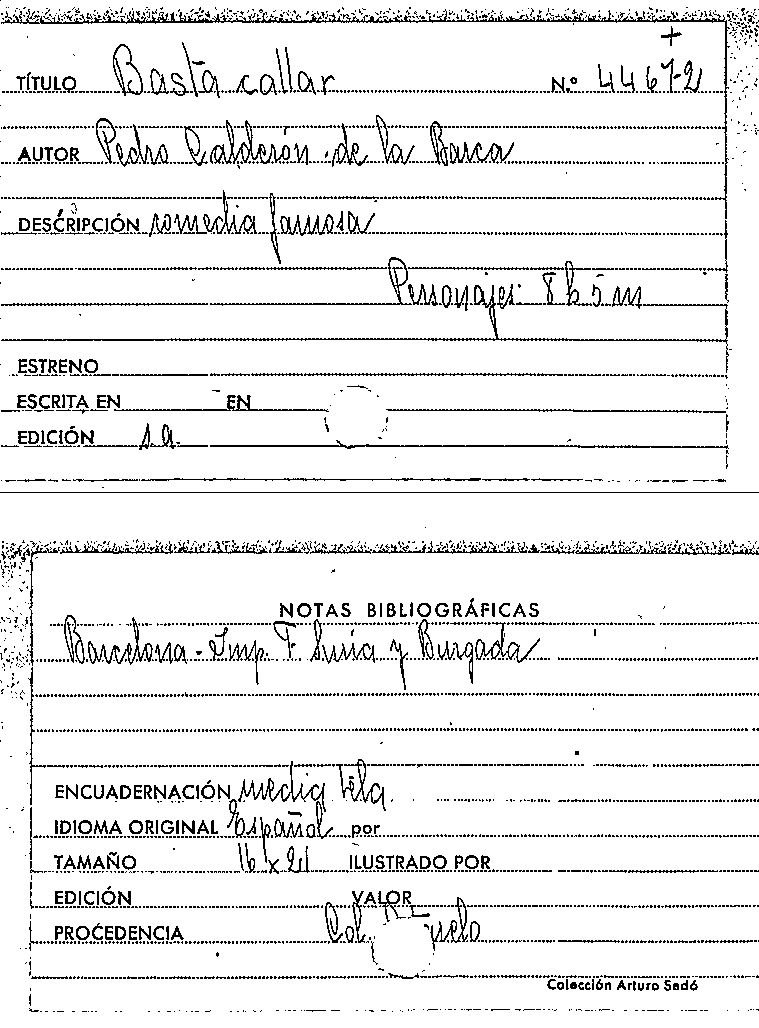 +
TÍTULO Basta callar N.º 4467-2
AUTOR Pedro Calderón de la Barca
DESCRIPCIÓN comedia famosa
Personajes: 8 h 5 m
ESTRENO
ESCRITA EN EN
EDICIÓN s.a.
NOTAS BIBLIOGRÁFICAS
Barcelona - Imp. F. Suria y Burgada
ENCUADERNACIÓN media tela.
IDIOMA ORIGINAL Español por
TAMAÑO 16 x 21 ILUSTRADO POR
EDICIÓN VALOR
PROCEDENCIA Col.
Colección Arturo Sedó